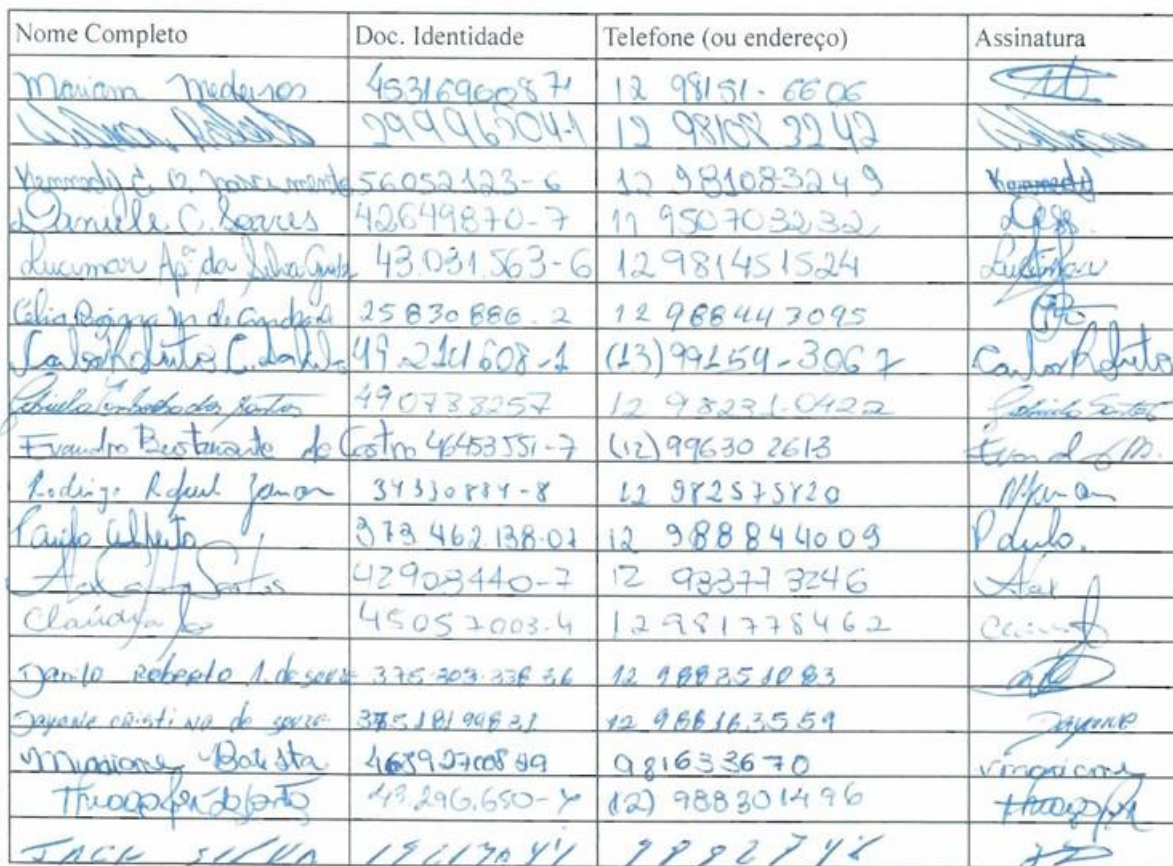 Nome Completo Doc. Identidade Telefone (ou endereço) Assinatura
Mariam Medeiros 45316960871 12 98151-6606
299963041 12 98108 3242
Kennedy C. D. nascimento 56052123-6 12 981083249 Kennedy
Daniele C. Soares 42649870-7 11 950703232
Lucimar Apª da Silva 43.031.563-6 12 981451524 Lucimar
Célia Regina M. de Andrade 25830886.2 12 988443095
Carlos Roberto C. 49.214608-1 (13) 99154-3067 Carlos Roberto
dos Santos 490738257 12 98231-0422 Santos
Evandro Bustamante de Castro 46453551-7 (12) 99630 2613
Rodrigo Rafael 12 982575820
Paulo Alberto 373 462.138-07 12 988844009 Paulo.
Santos 42903440-7 12 933773246
Claudya 45057003-4 12 981778462
Danilo Roberto 1. de souza 375.303.338 36 12 988351083
Dayane cristina de souza 12 988163559 Dayane
Mariane Batista 981633670 Mariane
Thiago 43.296.650-X (12) 988301496 Thiago
JACK SILVA